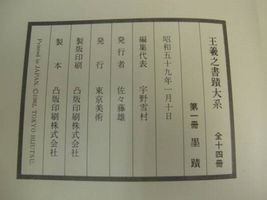 王羲之書蹟大系　全十四冊
第一冊　墨蹟
昭和五十九年一月十日
編集代表　宇野雪村
発行者　佐々藤雄
発行　東京美術
製版印刷　凸版印刷株式会社
製本　凸版印刷株式会社
Printed in JAPAN ©1982, TOKYO BIJUTSU.